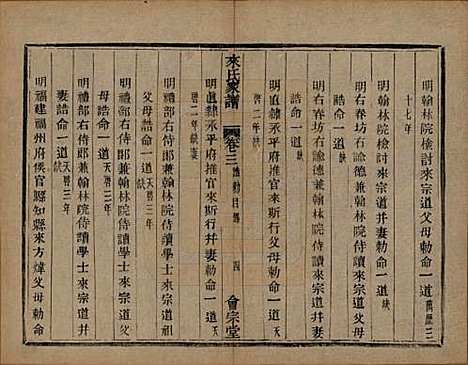 明翰林院檢討來宗道父母勅命一道萬曆三
十七年缺
明翰林院檢討來宗道并妻勅命一道缺
明右春坊右諭德兼翰林院侍讀來宗道父母
誥命一道缺
明右春坊右諭德兼翰林院侍讀來宗道并妻
誥命一道缺
明直隸永平府推官來斯行父母勅命一道天
啓二年缺
來氏家譜 卷三 誥勅目錄 四 會宗堂
明直隸永平府推官來斯行并妻勅命一道天
啓二年缺
明禮部右侍郎兼翰林院侍讀學士來宗道祖
父母誥命一道天啓三年
明禮部右侍郎兼翰林院侍讀學士來宗道父
母誥命一道天啓三年
明禮部右侍郎兼翰林院侍讀學士來宗道并
妻誥命一道天啓三年
明福建福州府候官縣知縣來方煒父母勅命